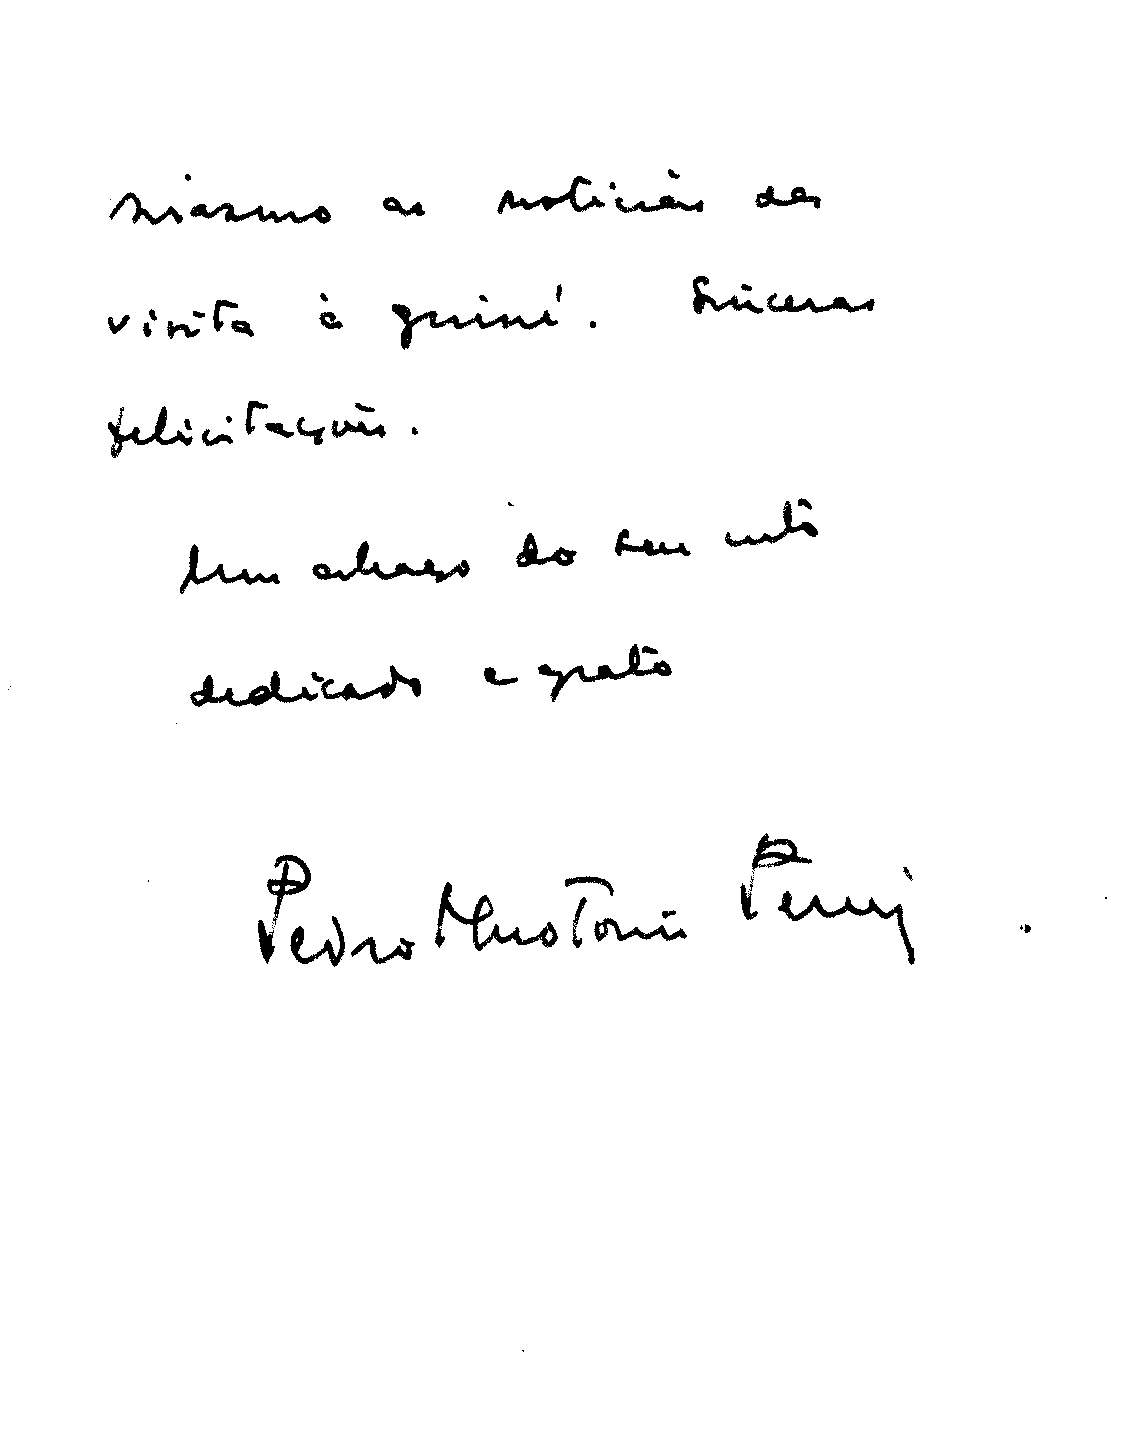 siasmo as notícias da
visita à Guiné. Sinceras
felicitações.
Um abraço do seu mto
dedicado e grato
Pedro Theotónio Pereira.